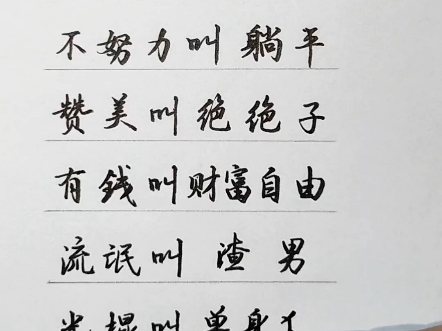 不努力叫躺平
赞美叫绝绝子
有钱叫财富自由
流氓叫渣男
光棍叫单身